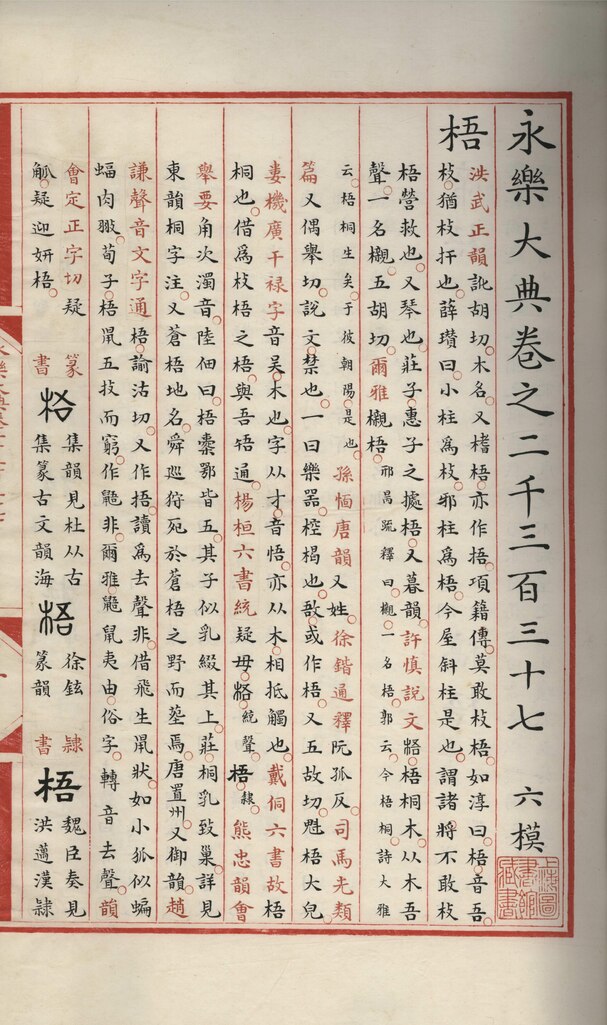 永樂大典卷之二千三百三十七 六模
梧
洪武正韻訛胡切木名又榰梧亦作捂項籍傳莫敢枝梧如淳曰梧音吾
枝猶枝扞也薛瓚曰小柱為枝邪柱為梧今屋斜柱是也謂諸將不敢枝
梧營救也又琴也莊子惠子之據梧又暮韻許慎說文梧桐木从木吾
聲一名櫬五胡切爾雅櫬梧邢昺疏釋曰櫬一名梧郭云今梧桐詩大雅
云梧桐生矣于彼朝陽是也孫愐唐韻又姓徐鍇通釋阮孤反司馬光類
篇又偶舉切說文禁也一曰樂器椌楬也敔或作梧又五故切魁梧大皃
婁機廣干禄字音吴木也字从才音悟亦从木相抵觸也戴侗六書故梧
桐也借為枝梧之梧與吾牾通楊桓六書統疑母統聲梧隸熊忠韻會
舉要角次濁音陸佃曰梧橐鄂皆五其子似乳綴其上莊桐乳致巢詳見
東韻桐字注又蒼梧地名舜巡狩死於蒼梧之野而塟焉唐置州又御韻趙
謙聲音文字通梧諭沽切又作捂讀為去聲非借飛生鼠狀如小狐似蝙
蝠肉翅荀子梧鼠五技而窮作鼯非爾雅鼯鼠夷由俗字轉音去聲韻
會定正字切疑觚疑迎妍梧
篆書 集韻見杜从古集篆古文韻海 徐鉉篆韻 隸書 梧 魏臣奏見洪邁漢隸
上海圖書館藏書